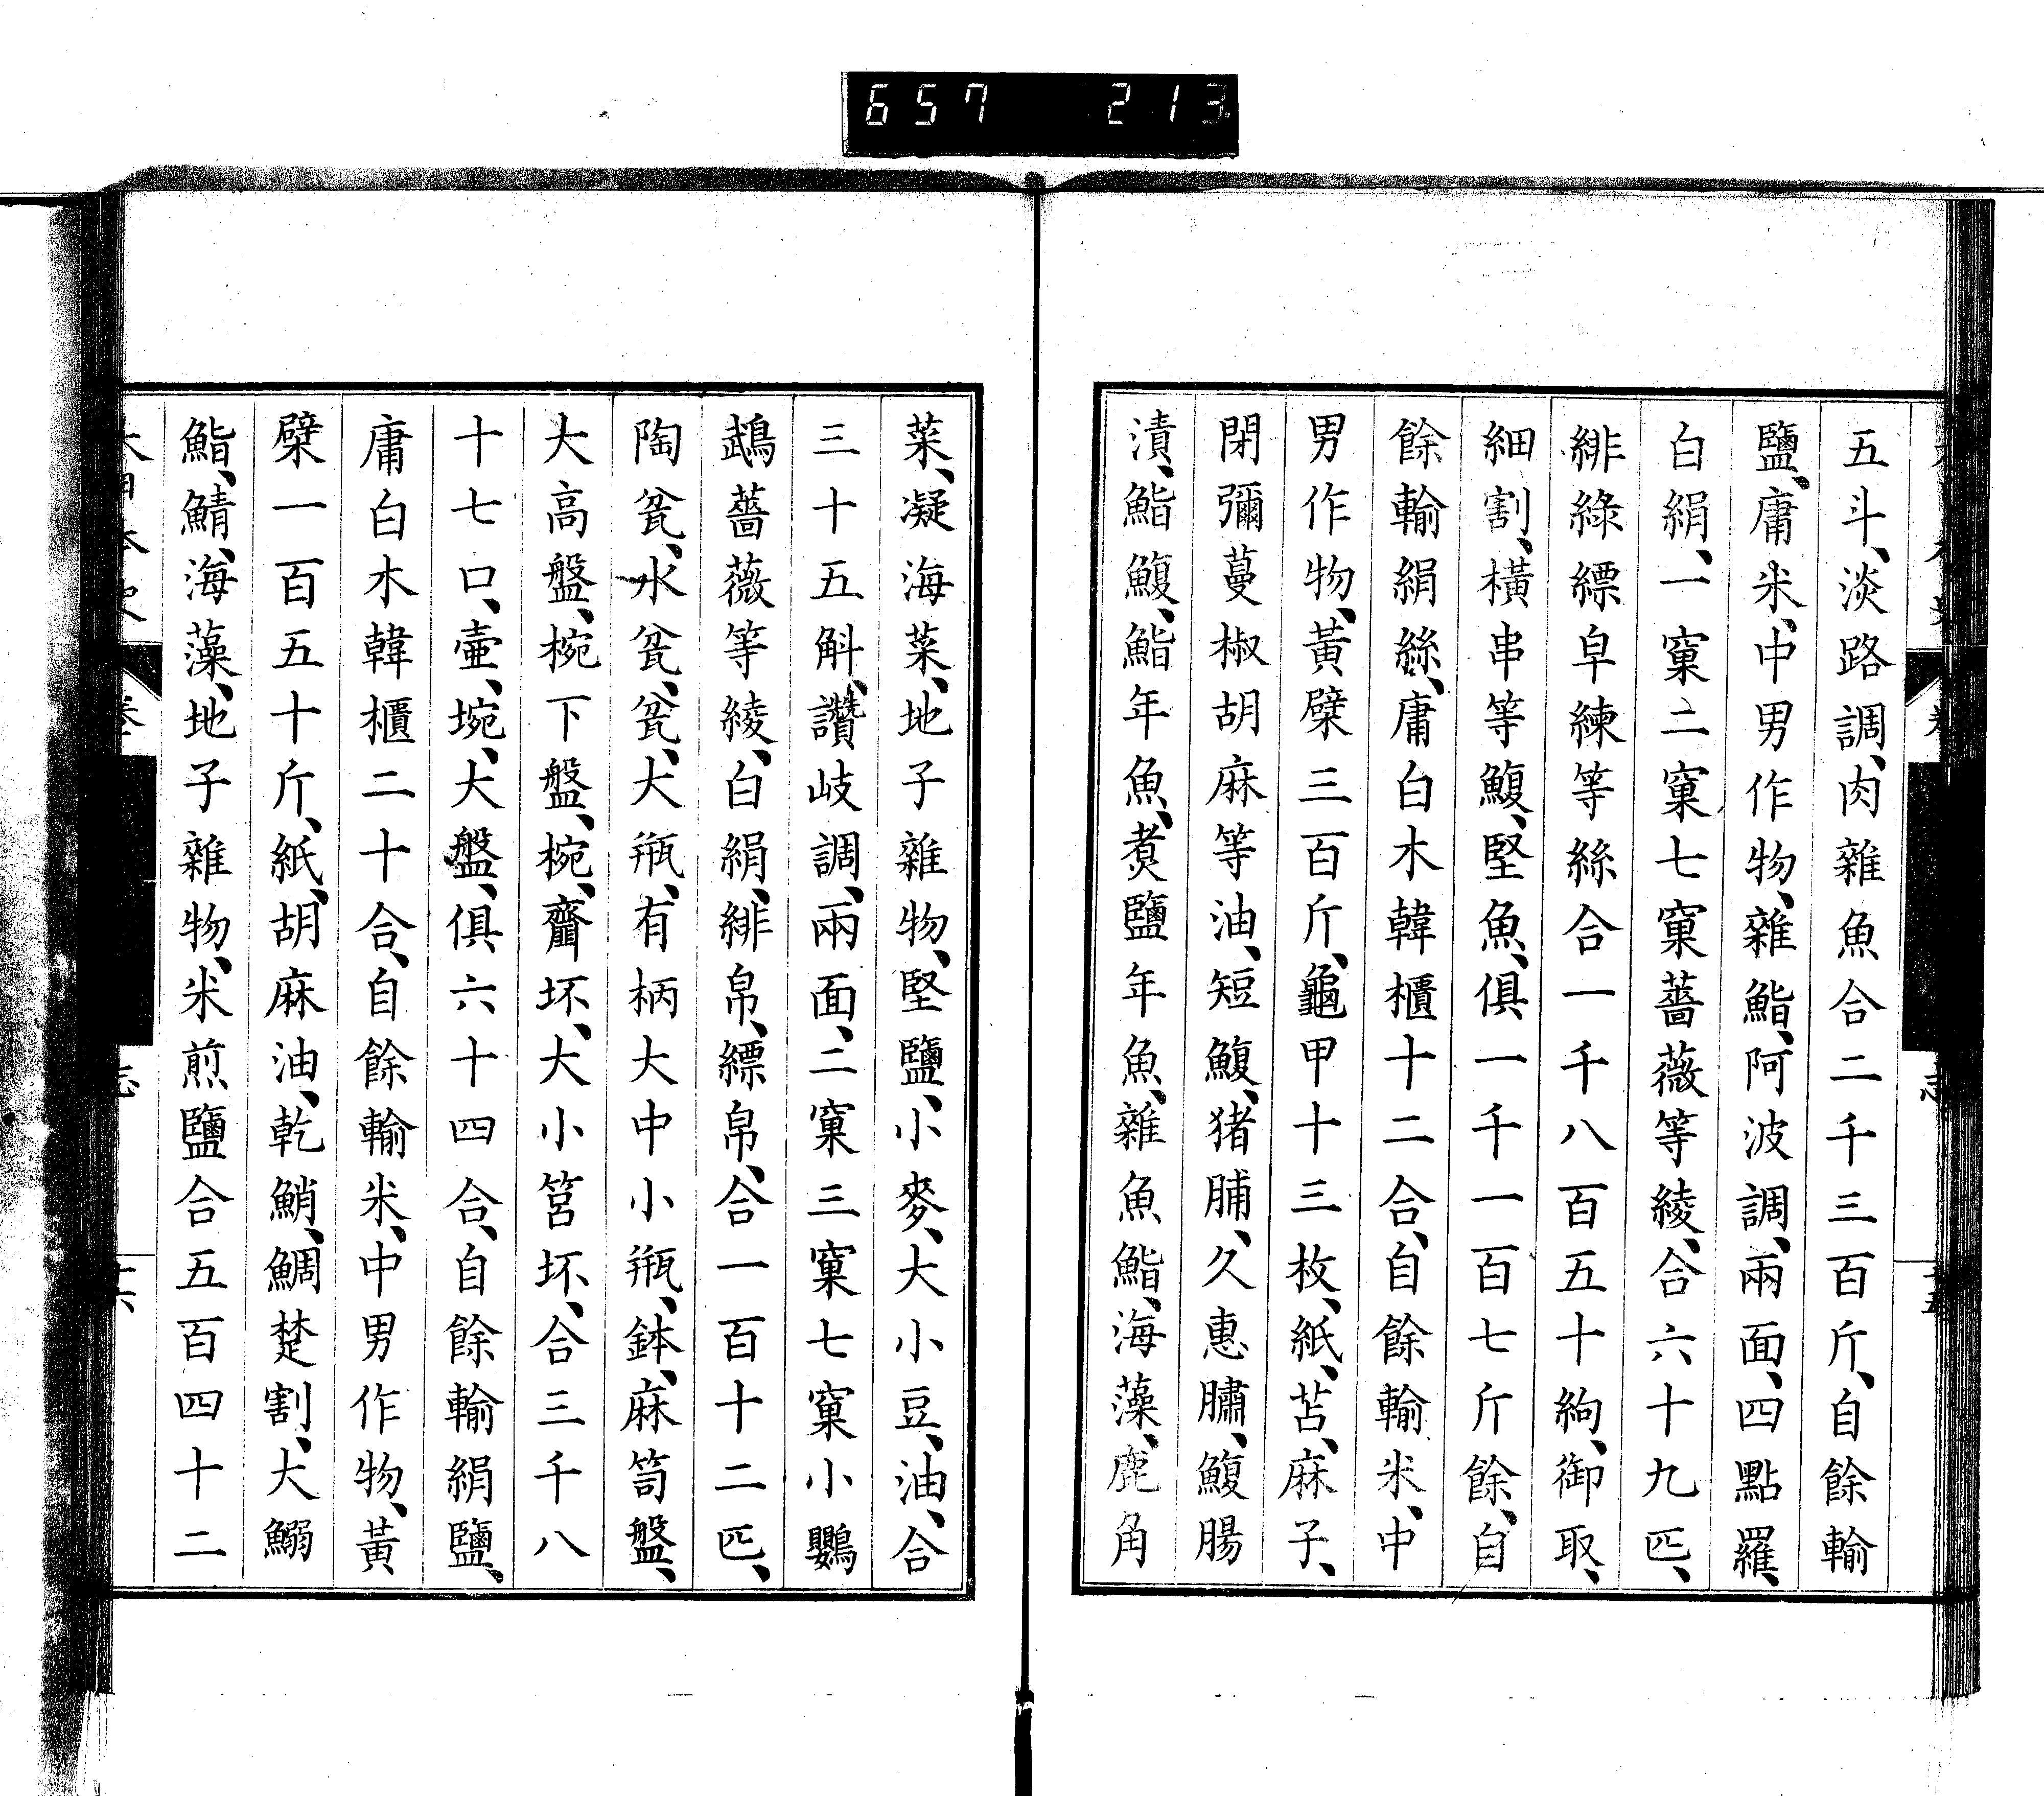 657 213
五斗、淡路調、肉雜魚合二千三百斤、自餘輸
鹽、庸米、中男作物、雜鮨、阿波調、兩面、四點羅、
白絹、一窠二窠七窠薔薇等綾、合六十九匹、
緋綠縹皁練等絲合一千八百五十絇、御取、
細割、橫串等鰒、堅魚、俱一千一百七斤餘、自
餘輸絹絲、庸白木韓櫃十二合、自餘輸米、中
男作物、黃檗三百斤、龜甲十三枚、紙、苫、麻子、
閉彌蔓椒胡麻等油、短鰒、猪脯、久惠腊、鰒腸
漬、鮨鰒、鮨年魚、煑鹽年魚、雜魚鮨、海藻、鹿角
菜、凝海菜、地子雜物、堅鹽、小麥、大小豆、油、合
三十五斛、讚岐調、兩面、二窠三窠七窠小鸚
鵡薔薇等綾、白絹、緋帛、縹帛、合一百十二匹、
陶瓫、水瓫、瓫、大瓶、有柄大中小瓶、鉢、麻笥盤、
大高盤、椀下盤、椀、齏坏、大小筥坏、合三千八
十七口、壷、垸、大盤、俱六十四合、自餘輸絹鹽、
庸白木韓櫃二十合、自餘輸米、中男作物、黃
檗一百五十斤、紙、胡麻油、乾鮹、鯛楚割、大鰯
鮨、鯖、海藻、地子雜物、米煎鹽合五百四十二